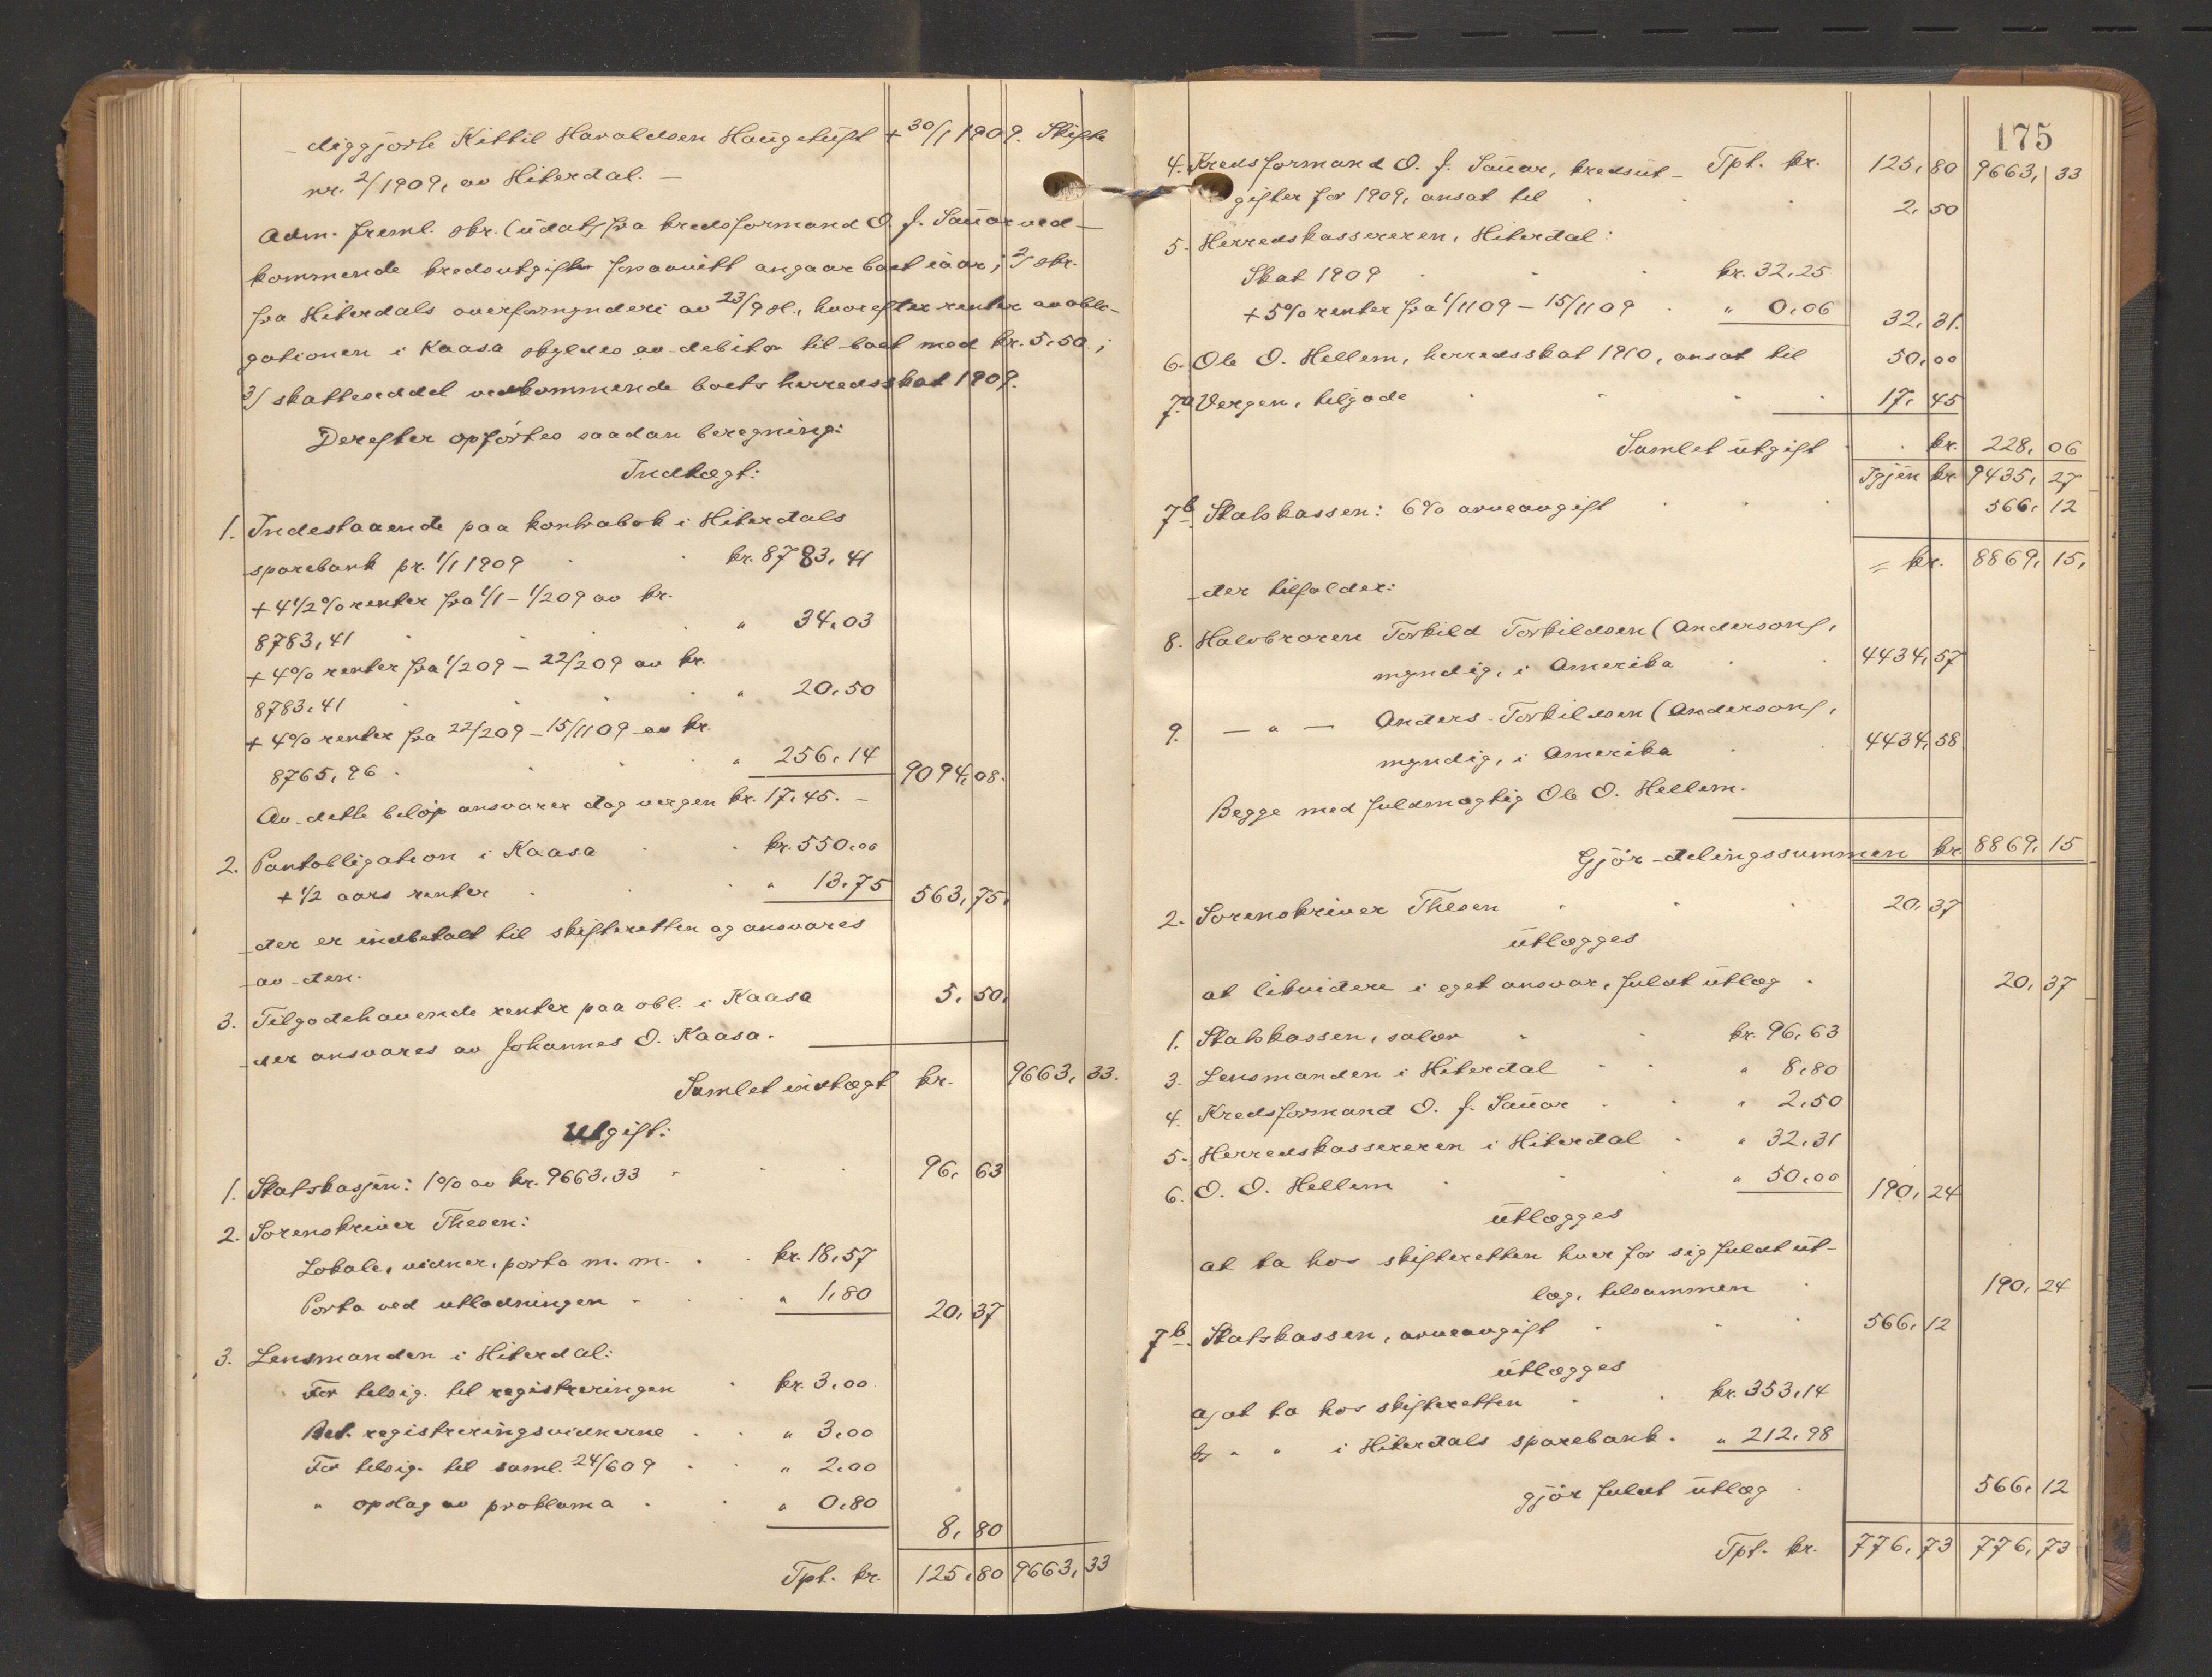 diggjorte Kittil Haraldsen Haugetuft + 30/1 1909. Skifte
nr. 2/1909, av Hiterdal. —
Adm. freml. skr. (udat) fra kredsformand O. J. Sauar ved-
kommende kredsutgifter forsaavitt angaar boet iaar; 2) skr.
fra Hiterdals overformynderi av 23/9 sl., hvorefter renter av obli-
gationen i Kaasa skyldes av debitor til boet med kr. 5,50;
3) skatteseddel vedkommende boets herredsskat 1909.
Derefter opførtes saadan beregning:
Indtægt:
1. Indestaaende paa kontrabok i Hiterdals
sparebank pr. 1/1 1909 kr. 8783,41
+ 4 1/2 % renter fra 1/1 – 1/2 09 av kr.
8783,41 " 34,03
+ 4% renter fra 1/2 09 – 22/2 09 av kr.
8783,41 " 20,50
+ 4% renter fra 22/2 09 – 15/11 09 av kr.
8765,96 " 256,14 9094,08.
Av dette beløp ansvarer dog vergen kr. 17,45. –
2. Pantobligation i Kaasa kr. 550,00
+ 1/2 aars renter " 13,75 563,75,
der er indbetalt til skifteretten og ansvares
av den.
3. Tilgodehavende renter paa obl. i Kaasa 5,50,
der ansvares av Johannes O. Kaasa.
Samlet indtægt kr. 9663,33.
Utgift:
1. Statskassen: 1% av kr. 9663,33 96,63
2. Sorenskriver Thesen:
Lokale, vidner, porto m. m. kr. 18,57
Porto ved utlodningen " 1,80 20,37
3. Lensmanden i Hiterdal:
For tilsig. til registreringen kr. 3,00
Bet. registreringsvidnerne " 3,00
For tilsig. til saml. 24/6 09 " 2,00
" opslag av proklama " 0,80
8,80
Tpt. kr. 125,80 9663,33
175
Tpt. kr. 125,80 9663,33
4. Kredsformand O. J. Sauar, kredsut-
gifter for 1909, ansat til 2,50
5. Herredskassereren, Hiterdal:
Skat 1909 kr. 32,25
+ 5% renter fra 1/11 09 – 15/11 09 " 0,06 32,31.
6. Ole O. Hellem, herredsskat 1910, ansat til 50,00
7a Vergen, tilgode 17,45
Samlet utgift kr. 228,06
Igjen kr. 9435,27
7b Statskassen: 6% arveavgift 566,12
= kr. 8869,15,
der tilfalder:
8. Halvbroren Torkild Torkildsen (Anderson),
myndig, i Amerika 4434,57
9. — " — Anders Torkildsen (Anderson),
myndig, i Amerika 4434,58
Begge med fuldmægtig Ole O. Hellem.
Gjør delingssummen kr. 8869,15
2. Sorenskriver Thesen 20,37
utlægges
at likvidere i eget ansvar, fuldt utlæg 20,37
1. Statskassen, salær kr. 96,63
3. Lensmanden i Hiterdal " 8,80
4. Kredsformand O. J. Sauar " 2,50
5. Herredskassereren i Hiterdal " 32,31
6. O. O. Hellem " 50,00 190,24
utlægges
at ta hos skifteretten hver for sig fuldt ut-
læg, tilsammen 190,24
7b. Statskassen, arveavgift 566,12
utlægges
a) at ta hos skifteretten kr. 353,14
b) " " i Hiterdals sparebank " 212,98
gjør fuldt utlæg 566,12
Tpt. kr. 776,73 776,73